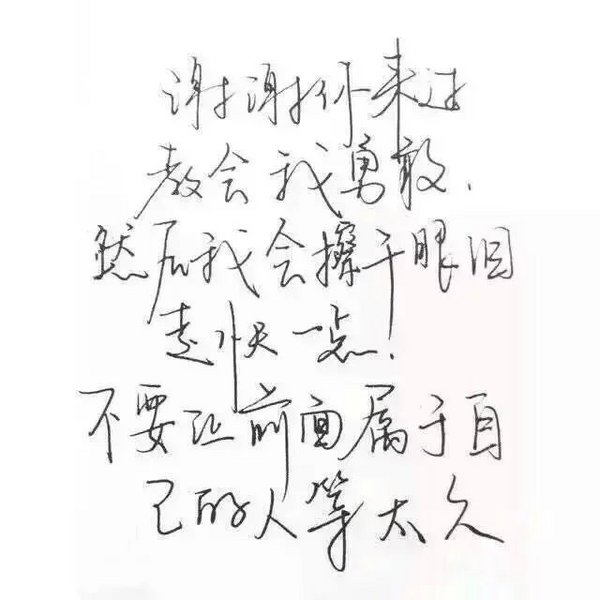 谢谢你来过
教会我勇敢.
然后我会擦干眼泪
走快一点!
不要让前面属于自
己的人等太久